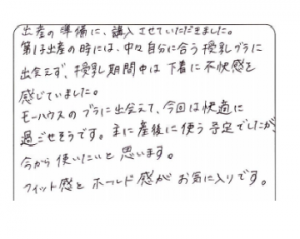 出産の準備に、購入させていただきました。
第1子出産の時には、中々自分に合う授乳ブラに
出会えず、授乳期間中は下着に不快感を
感じていました。
モーハウスのブラに出会えて、今回は快適に
過ごせそうです。主に産後に使う予定でしたが、
今から使いたいと思います。
フィット感とホールド感がお気に入りです。